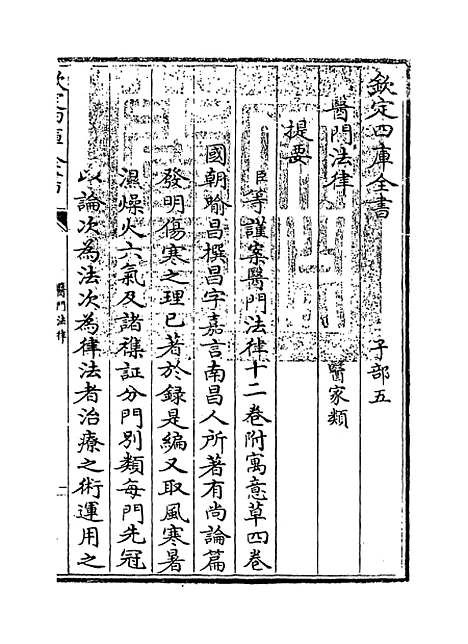 欽定四庫全書 子部五
醫門法律 醫家類
提要
臣等謹案醫門法律十二卷附寓意草四卷
國朝喻昌撰昌字嘉言南昌人所著有尚論篇
發明傷寒之理已著於録是編又取風寒暑
濕燥火六氣及諸雜証分門別類每門先冠
以論次為法次為律法者治療之術運用之
醫門法律